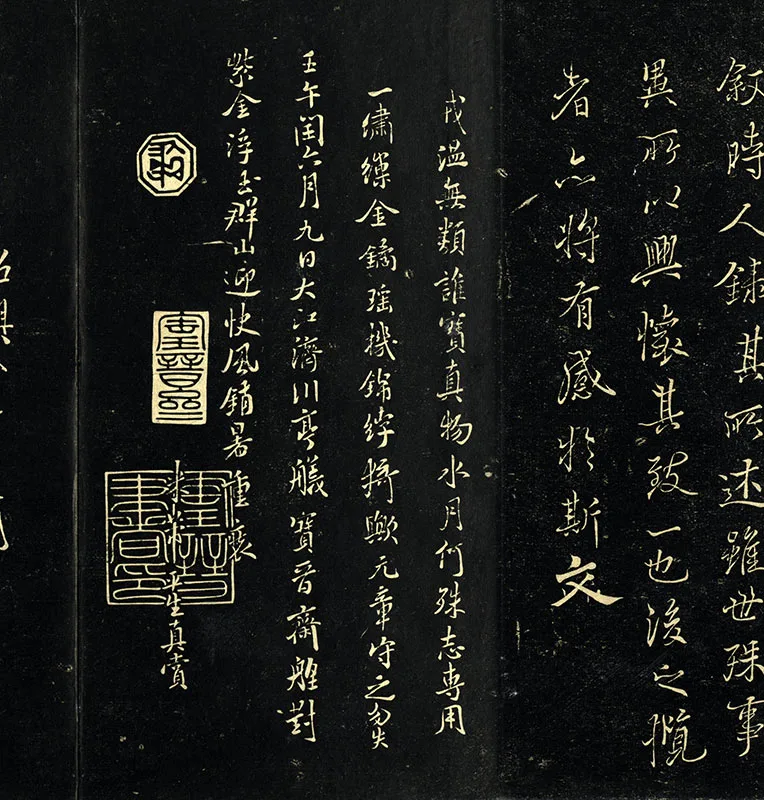 敘時人錄其所述雖世殊事
異所以興懷其致一也後之攬
者亦將有感於斯文
戎溫無類誰寶真物水月何殊志專用
一繡繅金鐍瑤機錦綍猗歟元章守之勿失
壬午閏六月九日大江濟川亭艤寶晉齋艎對
紫金浮玉群山迎快風銷暑重裝
米芾平生真賞